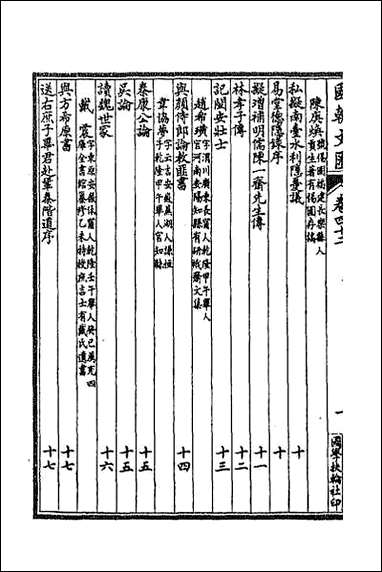 國朝文匯 卷四十二 一 國學扶輪社印
陳庚煥 字 號惕園福建長樂縣人貢生著有惕園存稿
私擬南臺水利隱憂議 十
易堂德隱錄序 十
擬增補明儒陳一齋先生傳 十一
林孝子傳 十二
記閩安壯士 十三
趙希璜 字渭川廣東長寧人乾隆甲午舉人官河南安陽知縣有研栰齋文集
與顏侍郎論救匪書 十四
韋協夢 字雲吉安徽蕪湖人謙恒子乾隆甲午舉人官知縣
秦康公論 十五
吳論 十五
讀魏世家 十六
戴震 字東原安徽休寧人乾隆壬午舉人癸巳薦充四庫全書館纂修乙未特授庶吉士有戴氏遺書
與方希原書 十七
送右庶子畢君赴鞏秦階道序 十七